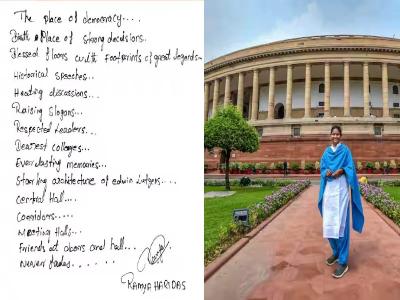 The place of democracy....
Birth Place of Strong decisions..
Blessed floors with Footprints of great legends...
Historical Speeches...
Heating discussions...
Raising Slogans...
Respected Leaders...
Dearest colleges...
Everlasting memories...
Starling architecture of edwin Lutyens....
Central Hall....
Corridors.....
Meeting Halls...
Friends at doors and hall...
Never fades......
RAMYA HARIDAS